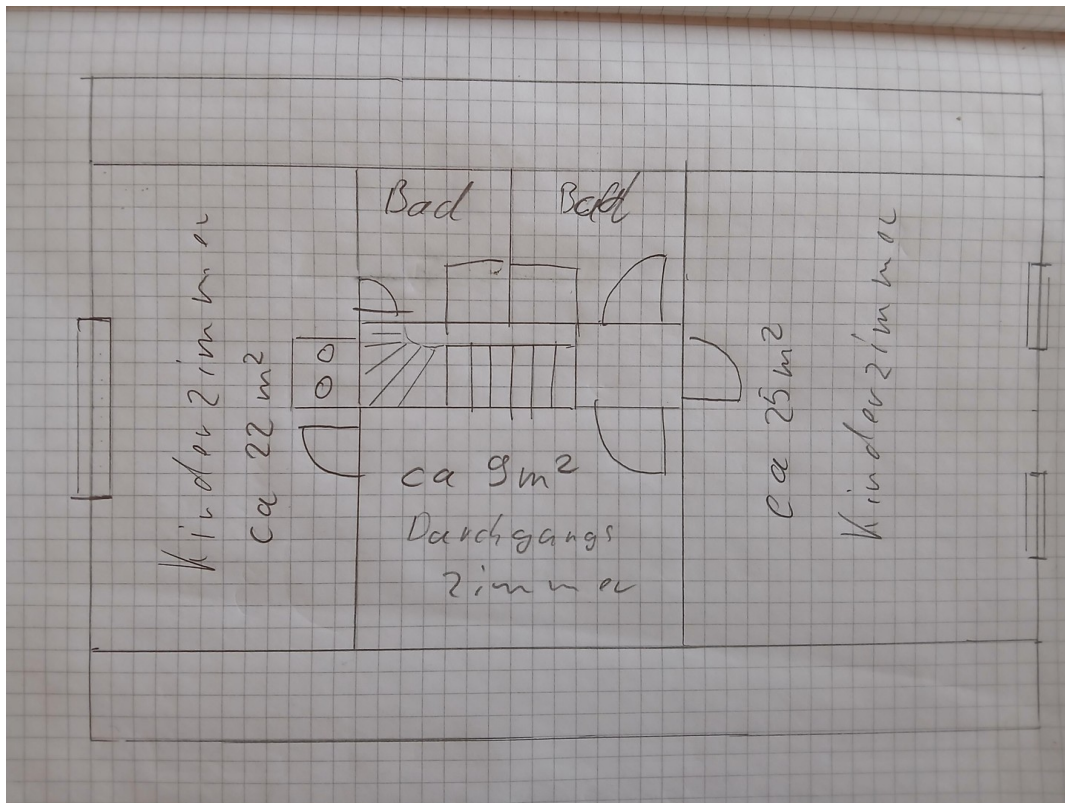 Bad
Bad
Kinderzimmer
ca 22 m²
ca 9m²
Durchgangs
zimmer
ca 25m²
Kinderzimmer